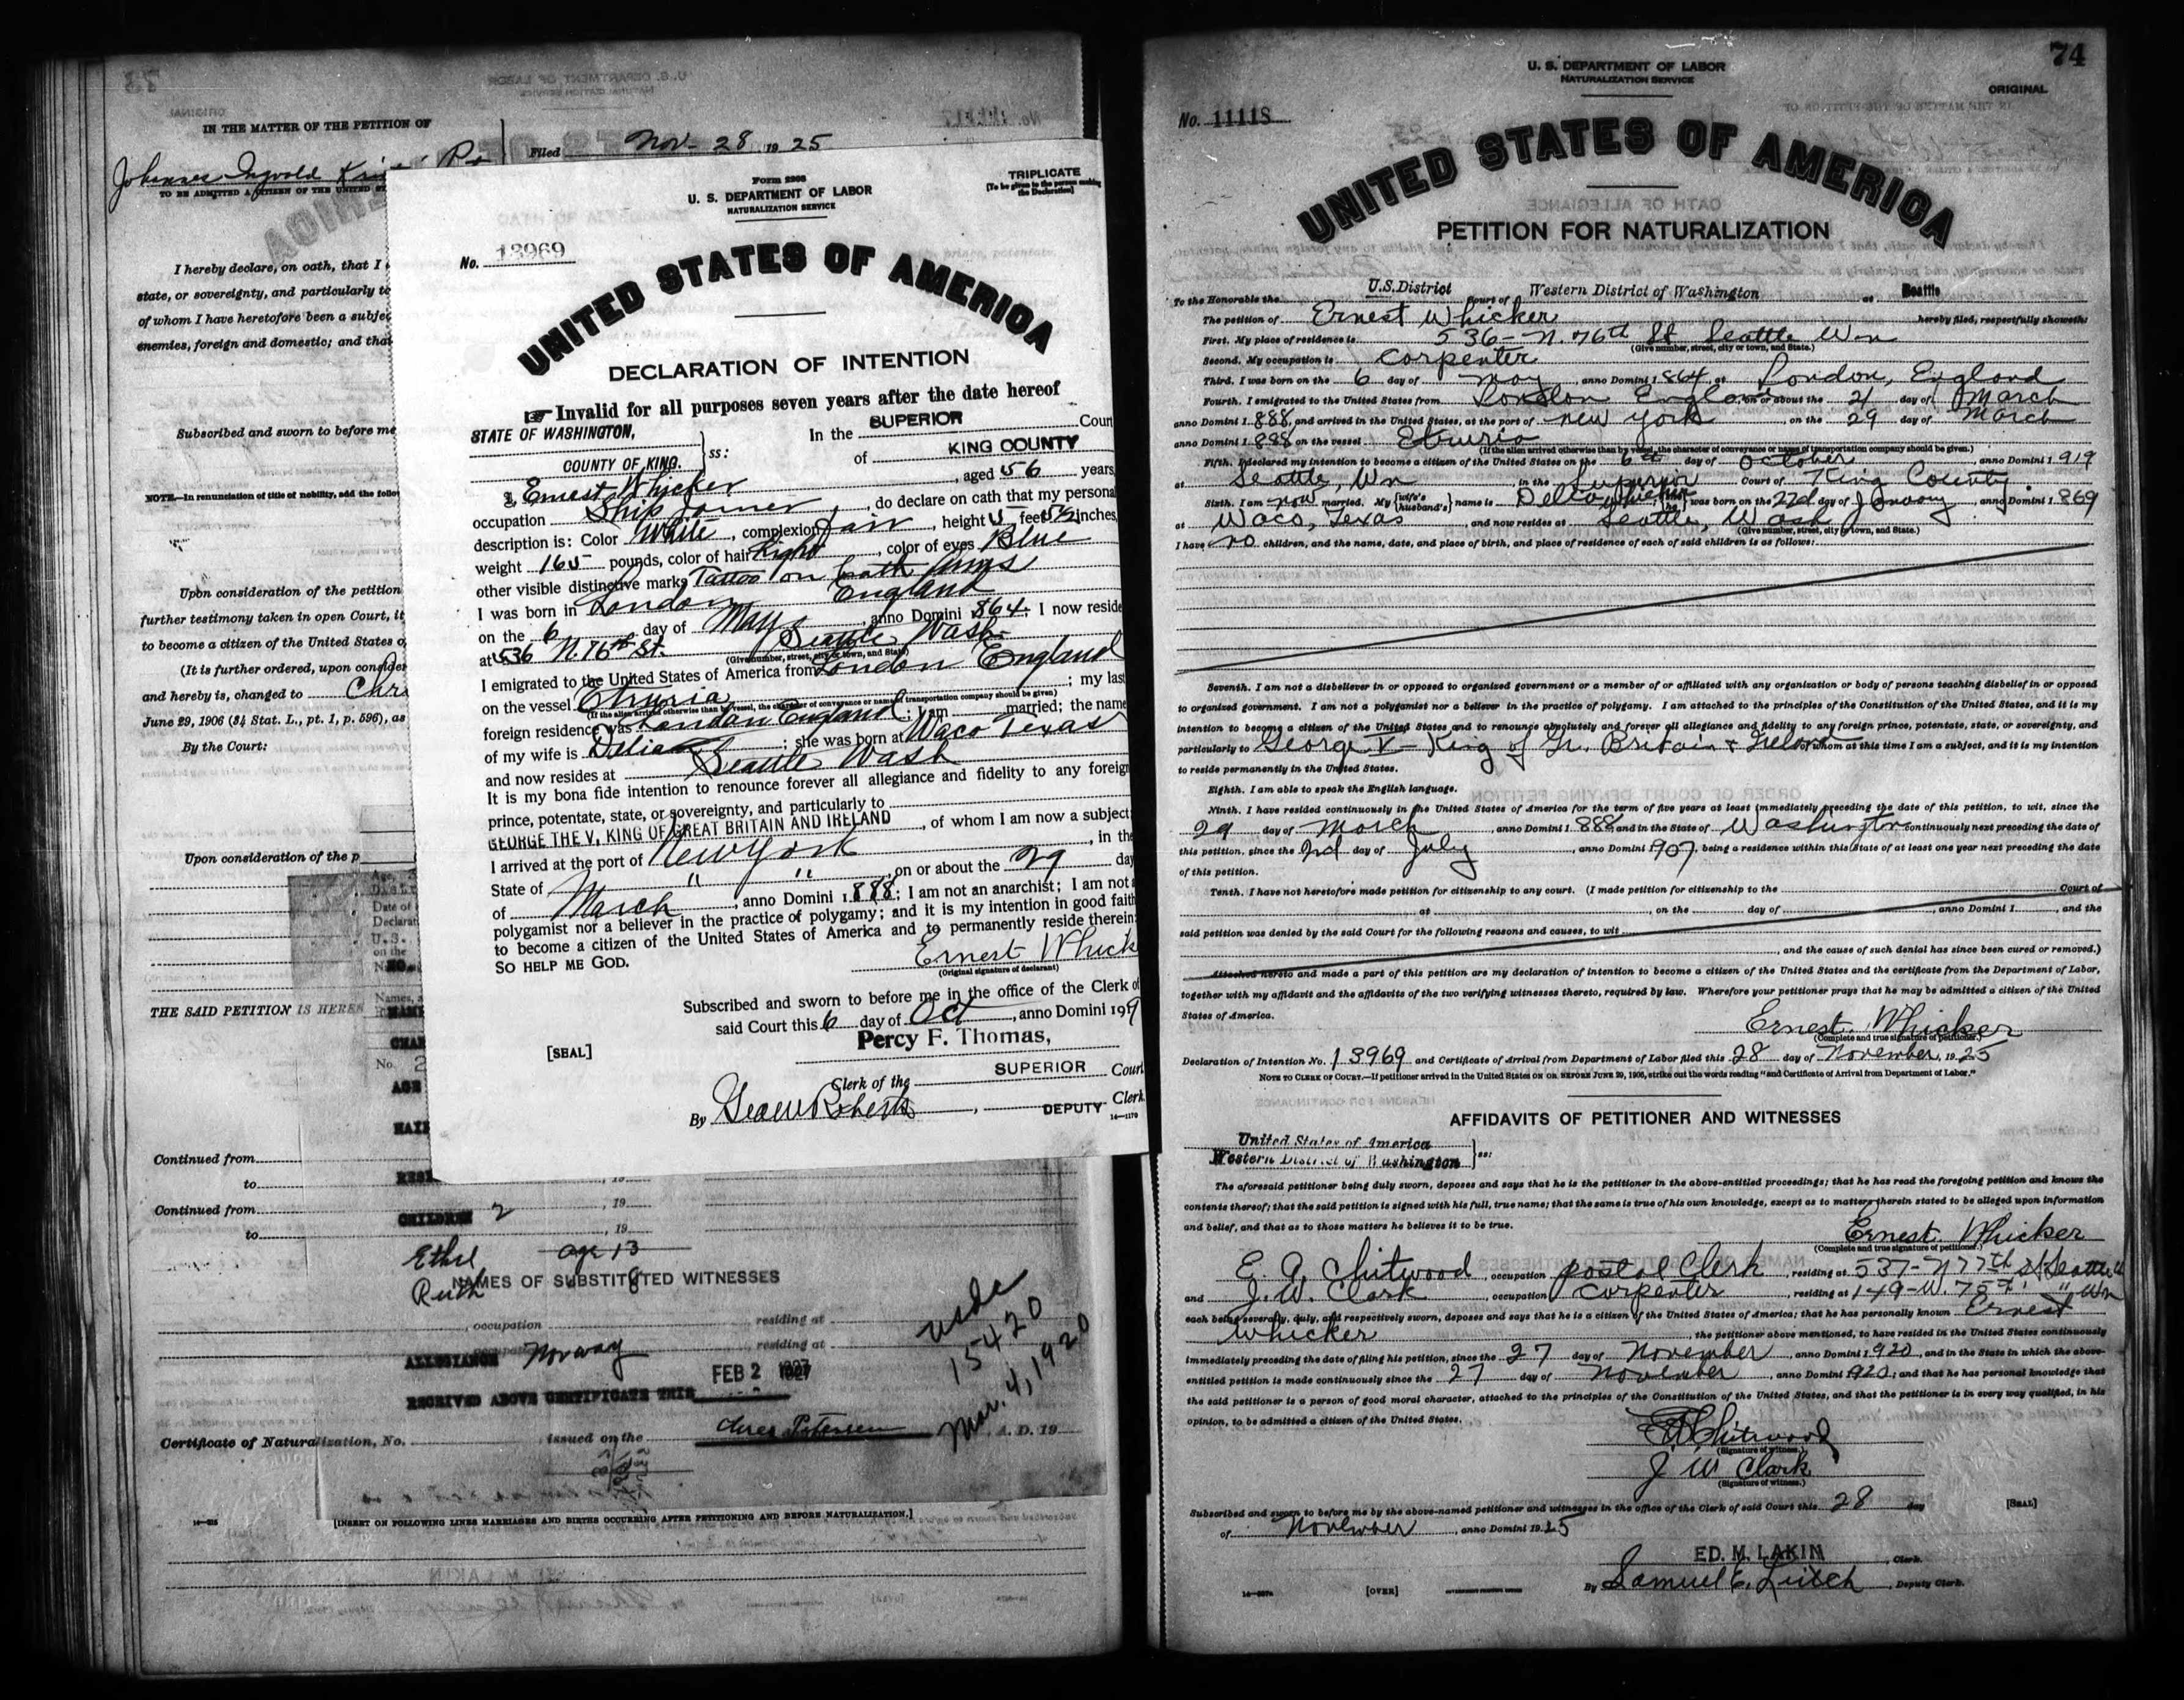 IN THE MATTER OF THE PETITION OF
Johannes Ingvold
TO BE ADMITTED A CITIZEN OF THE UNITED
Filed Nov- 28, 1925
I hereby declare, on oath, that I
state, or sovereignty, and particularly to
of whom I have heretofore been a subjec
enemies, foreign and domestic; and that
Subscribed and sworn to before me
NOTE.—In renunciation of title of nobility, add the follo
Upon consideration of the petition
further testimony taken in open Court, it
to become a citizen of the United States o
(It is further ordered, upon consider
and hereby is, changed to
June 29, 1906 (34 Stat. L., pt. 1, p. 596), as
By the Court:
Upon consideration of the p
Age,
Date of
Declarat
U.S.
on the
THE SAID PETITION IS HERE
Names,
No. 2
AGE
HAIR
Continued from
to
Continued from , 19
CHILDREN 2
to , 19
Ethel age 13
Ruth 8
NAMES OF SUBSTITUTED WITNESSES
, occupation residing at
residing at
ALLEGIANCE Norway
FEB 2 1927
RECEIVED ABOVE CERTIFICATE THIS
usdc
15420
Mar. 4, 1920
Certificate of Naturalization, No. issued on the A. D. 19
[INSERT ON FOLLOWING LINES MARRIAGES AND BIRTHS OCCURRING AFTER PETITIONING AND BEFORE NATURALIZATION.]
Form 2203
TRIPLICATE
[To be given to the person making the Declaration]
U. S. DEPARTMENT OF LABOR
NATURALIZATION SERVICE
No. 13969
UNITED STATES OF AMERICA
DECLARATION OF INTENTION
Invalid for all purposes seven years after the date hereof
STATE OF WASHINGTON,
COUNTY OF KING. ss:
In the SUPERIOR Court
of KING COUNTY
I, Ernest Whicker, aged 56 years
occupation Ship Joiner, do declare on oath that my personal
description is: Color White, complexion fair, height 5 feet 5½ inches,
weight 165 pounds, color of hair Light, color of eyes Blue
other visible distinctive marks Tattoo on both Arms
I was born in London England
on the 6 day of May, anno Domini 1864; I now reside
at 536 N. 76th St. Seattle Wash.
(Give number, street, city or town, and State)
I emigrated to the United States of America from London England
on the vessel Etruria; my last
(If the alien arrived otherwise than by vessel, the character of conveyance or name of transportation company should be given)
foreign residence was London England; I am married; the name
of my wife is Delia; she was born at Waco Texas
and now resides at Seattle Wash
It is my bona fide intention to renounce forever all allegiance and fidelity to any foreign
prince, potentate, state, or sovereignty, and particularly to
GEORGE THE V, KING OF GREAT BRITAIN AND IRELAND, of whom I am now a subject;
I arrived at the port of New York, in the
State of " ", on or about the 29 day
of March, anno Domini 1888; I am not an anarchist; I am not a
polygamist nor a believer in the practice of polygamy; and it is my intention in good faith
to become a citizen of the United States of America and to permanently reside therein:
SO HELP ME GOD.
Ernest Whick
(Original signature of declarant)
Subscribed and sworn to before me in the office of the Clerk of
said Court this 6 day of Oct, anno Domini 1919
[SEAL]
Percy F. Thomas,
Clerk of the SUPERIOR Court
By Geo W Roberts, DEPUTY Clerk.
14—1170
74
U. S. DEPARTMENT OF LABOR
NATURALIZATION SERVICE
ORIGINAL
No. 11118
UNITED STATES OF AMERICA
PETITION FOR NATURALIZATION
To the Honorable the U.S. District Court of Western District of Washington at Seattle
The petition of Ernest Whicker hereby filed, respectfully showeth:
First. My place of residence is 536- N. 76th St Seattle Wn
(Give number, street, city or town, and State.)
Second. My occupation is Carpenter
Third. I was born on the 6 day of May, anno Domini 1864, at London, England
Fourth. I emigrated to the United States from London England on or about the 21 day of March
anno Domini 1888, and arrived in the United States, at the port of New York, on the 29 day of March
anno Domini 1888 on the vessel Etruria
(If the alien arrived otherwise than by vessel, the character of conveyance or name of transportation company should be given.)
Fifth. I declared my intention to become a citizen of the United States on the 6th day of October, anno Domini 1919
at Seattle, Wn, in the Superior Court of King County.
Sixth. I am now married. My {wife's husband's} name is Delia Whicker; was born on the 22d day of January, anno Domini 1869
at Waco, Texas, and now resides at Seattle, Wash
(Give number, street, city or town, and State.)
I have no children, and the name, date, and place of birth, and place of residence of each of said children is as follows:
Seventh. I am not a disbeliever in or opposed to organized government or a member of or affiliated with any organization or body of persons teaching disbelief in or opposed
to organized government. I am not a polygamist nor a believer in the practice of polygamy. I am attached to the principles of the Constitution of the United States, and it is my
intention to become a citizen of the United States and to renounce absolutely and forever all allegiance and fidelity to any foreign prince, potentate, state, or sovereignty, and
particularly to George V- King of Gr. Britain & Ireland of whom at this time I am a subject, and it is my intention
to reside permanently in the United States.
Eighth. I am able to speak the English language.
Ninth. I have resided continuously in the United States of America for the term of five years at least immediately preceding the date of this petition, to wit, since the
29 day of March, anno Domini 1888, and in the State of Washington continuously next preceding the date of
this petition, since the 2nd day of July, anno Domini 1907, being a residence within this State of at least one year next preceding the date
of this petition.
Tenth. I have not heretofore made petition for citizenship to any court. (I made petition for citizenship to the Court of
at , on the day of , anno Domini 1 , and the
said petition was denied by the said Court for the following reasons and causes, to wit
, and the cause of such denial has since been cured or removed.)
Attached hereto and made a part of this petition are my declaration of intention to become a citizen of the United States and the certificate from the Department of Labor,
together with my affidavit and the affidavits of the two verifying witnesses thereto, required by law. Wherefore your petitioner prays that he may be admitted a citizen of the United
States of America.
Ernest. Whicker
(Complete and true signature of petitioner.)
Declaration of Intention No. 13969 and Certificate of Arrival from Department of Labor filed this 28 day of November, 1925
NOTE TO CLERK OF COURT.—If petitioner arrived in the United States ON OR BEFORE JUNE 29, 1906, strike out the words reading "and Certificate of Arrival from Department of Labor."
AFFIDAVITS OF PETITIONER AND WITNESSES
United States of America
Western District of Washington ss:
The aforesaid petitioner being duly sworn, deposes and says that he is the petitioner in the above-entitled proceedings; that he has read the foregoing petition and knows the
contents thereof; that the said petition is signed with his full, true name; that the same is true of his own knowledge, except as to matters therein stated to be alleged upon information
and belief, and that as to those matters he believes it to be true.
Ernest. Whicker
(Complete and true signature of petitioner.)
E. A. Chitwood, occupation postal Clerk, residing at 537- N 77th St Seattle
and J. W. Clark, occupation Carpenter, residing at 149- W. 75th " Wn
each being severally, duly, and respectively sworn, deposes and says that he is a citizen of the United States of America; that he has personally known Ernest
Whicker, the petitioner above mentioned, to have resided in the United States continuously
immediately preceding the date of filing his petition, since the 27 day of November, anno Domini 1920, and in the State in which the above-
entitled petition is made continuously since the 27 day of November, anno Domini 1920; and that he has personal knowledge that
the said petitioner is a person of good moral character, attached to the principles of the Constitution of the United States, and that the petitioner is in every way qualified, in his
opinion, to be admitted a citizen of the United States.
EA Chitwood
(Signature of witness.)
J W Clark
(Signature of witness.)
Subscribed and sworn to before me by the above-named petitioner and witnesses in the office of the Clerk of said Court this 28 day
of November, anno Domini 1925
[SEAL]
ED. M. LAKIN, Clerk.
[OVER]
By Samuel E. Leitch, Deputy Clerk.